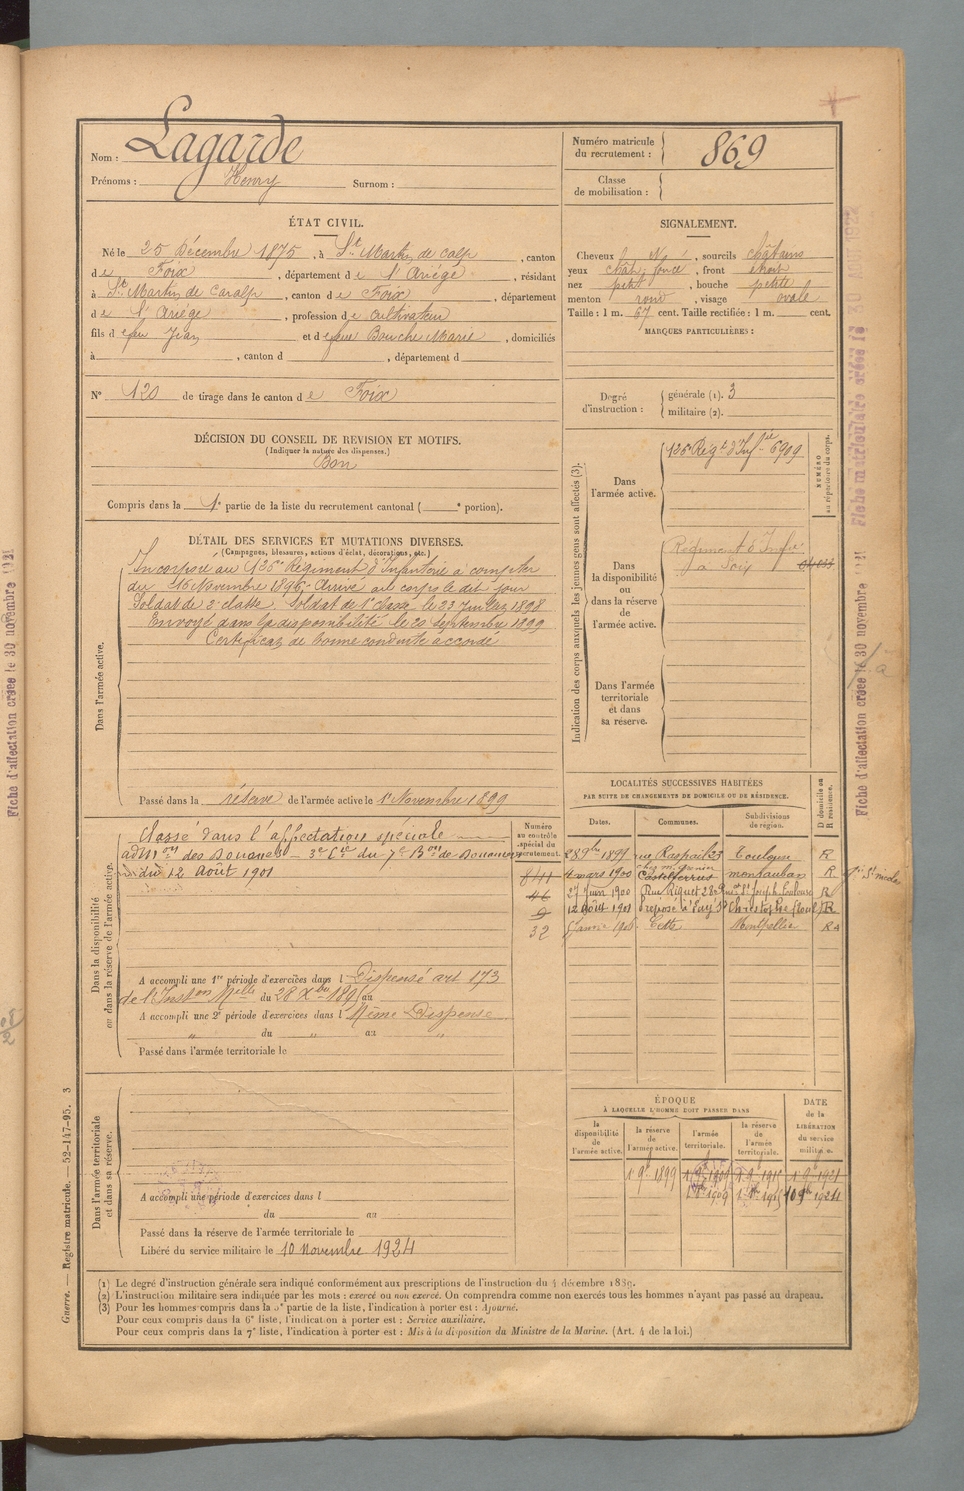 Nom : Lagarde
Prénoms : Henry Surnom :
Numéro matricule du recrutement : 869
Classe de mobilisation :
ÉTAT CIVIL.
Né le 25 Décembre 1875, à St Martin de Calp, canton
de Foix, département de l'Ariége, résidant
à St Martin de Caralp, canton de Foix, département
de l'Ariége, profession de cultivateur
fils de feu Jean et de feue Bouche Marie, domiciliés
à , canton d , département d
N° 120 de tirage dans le canton de Foix
SIGNALEMENT.
Cheveux , sourcils châtains
yeux chât. foncé, front étroit
nez petit, bouche petite
menton rond, visage ovale
Taille : 1 m. 67 cent. Taille rectifiée : 1 m. cent.
MARQUES PARTICULIÈRES :
Degré d'instruction : générale (1). 3
militaire (2).
DÉCISION DU CONSEIL DE REVISION ET MOTIFS.
(Indiquer la nature des dispenses.)
Bon
Compris dans la 1e partie de la liste du recrutement cantonal ( e portion).
DÉTAIL DES SERVICES ET MUTATIONS DIVERSES.
(Campagnes, blessures, actions d'éclat, décorations, etc.)
Dans l'armée active.
Incorporé au 126e Régiment d'Infanterie à compter
du 16 Novembre 1896. Arrivé au corps le dit jour
Soldat de 2e classe. Soldat de 1e Classe le 23 Juillet 1898
Envoyé dans la disponibilité le 20 septembre 1899
Certificat de bonne conduite accordé
Passé dans la réserve de l'armée active le 1er Novembre 1899
Indication des corps auxquels les jeunes gens sont affectés (3).
NUMÉRO au répertoire du corps.
Dans l'armée active.
126 Régt d'Infie 6909
Dans la disponibilité ou dans la réserve de l'armée active.
Régiment d'Infie
à Foix
Dans l'armée territoriale et dans sa réserve.
Dans la disponibilité ou dans la réserve de l'armée active.
Classé dans l'affectation spéciale
admon des Douanes - 3e Cie du 7e Bon de Douaniers
du 12 Août 1901
A accompli une 1re période d'exercices dans l Dispensé art 173
de l'Inston Melle du 28 Xbre au
A accompli une 2e période d'exercices dans l Même Dispense
„ du „ au „
Passé dans l'armée territoriale le
Numéro au contrôle spécial du recrutement.
46
9
32
LOCALITÉS SUCCESSIVES HABITÉES
PAR SUITE DE CHANGEMENTS DE DOMICILE OU DE RÉSIDENCE.
Dates. Communes. Subdivisions de région. D domicile ou R résidence.
rue Raspail 23 Toulouse R
4 mars 1900 Castelferrus montauban R
27 Juin 1900 Rue Riquet 28 St Joseph Toulouse R
12 août 1901 préposé à R
Cette Montpellier
Dans l'armée territoriale et dans sa réserve.
A accompli une période d'exercices dans l
du au
Passé dans la réserve de l'armée territoriale le
Libéré du service militaire le 10 Novembre 1924
ÉPOQUE
À LAQUELLE L'HOMME DOIT PASSER DANS
la disponibilité de l'armée active. la réserve de l'armée active. l'armée territoriale. la réserve de l'armée territoriale.
DATE de la LIBÉRATION du service militaire.
1er 9bre 1899
(1) Le degré d'instruction générale sera indiqué conformément aux prescriptions de l'instruction du 4 décembre 1889.
(2) L'instruction militaire sera indiquée par les mots : exercé ou non exercé. On comprendra comme non exercés tous les hommes n'ayant pas passé au drapeau.
(3) Pour les hommes compris dans la 5e partie de la liste, l'indication à porter est : Ajourné.
Pour ceux compris dans la 6e liste, l'indication à porter est : Service auxiliaire.
Pour ceux compris dans la 7e liste, l'indication à porter est : Mis à la disposition du Ministre de la Marine. (Art. 4 de la loi.)
Guerre. — Registre matricule. — 52-147-95. 3
Fiche d'affectation créée le 30 novembre 1921
Fiche d'affectation créée le 30 novembre
Fiche matriculaire créée le 30